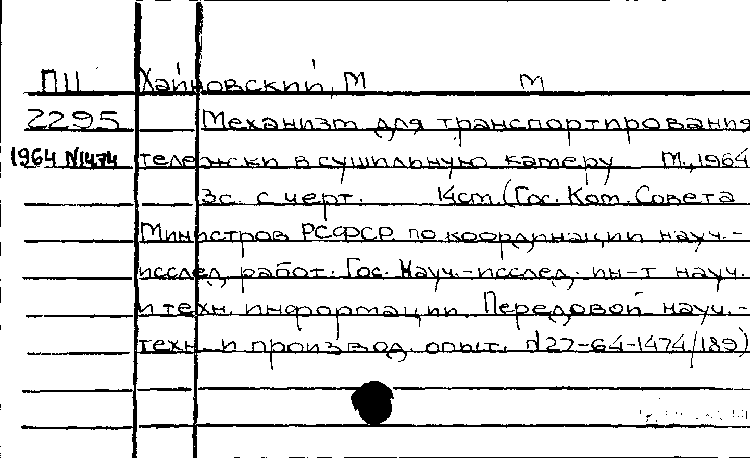 П11 Хайновский, М М
2295 Механизм для транспортирования
1964 N1474 тележки в сушильную камеру М., 1964
3с. с черт. 14см. (Гос. Ком. Совета
Министров РСФСР по координации науч.-
исслед. работ. Гос. Науч.-исслед. ин-т науч.
и техн. информации. Передовой науч.-
техн. и производ. опыт. N27-64-1474/189)